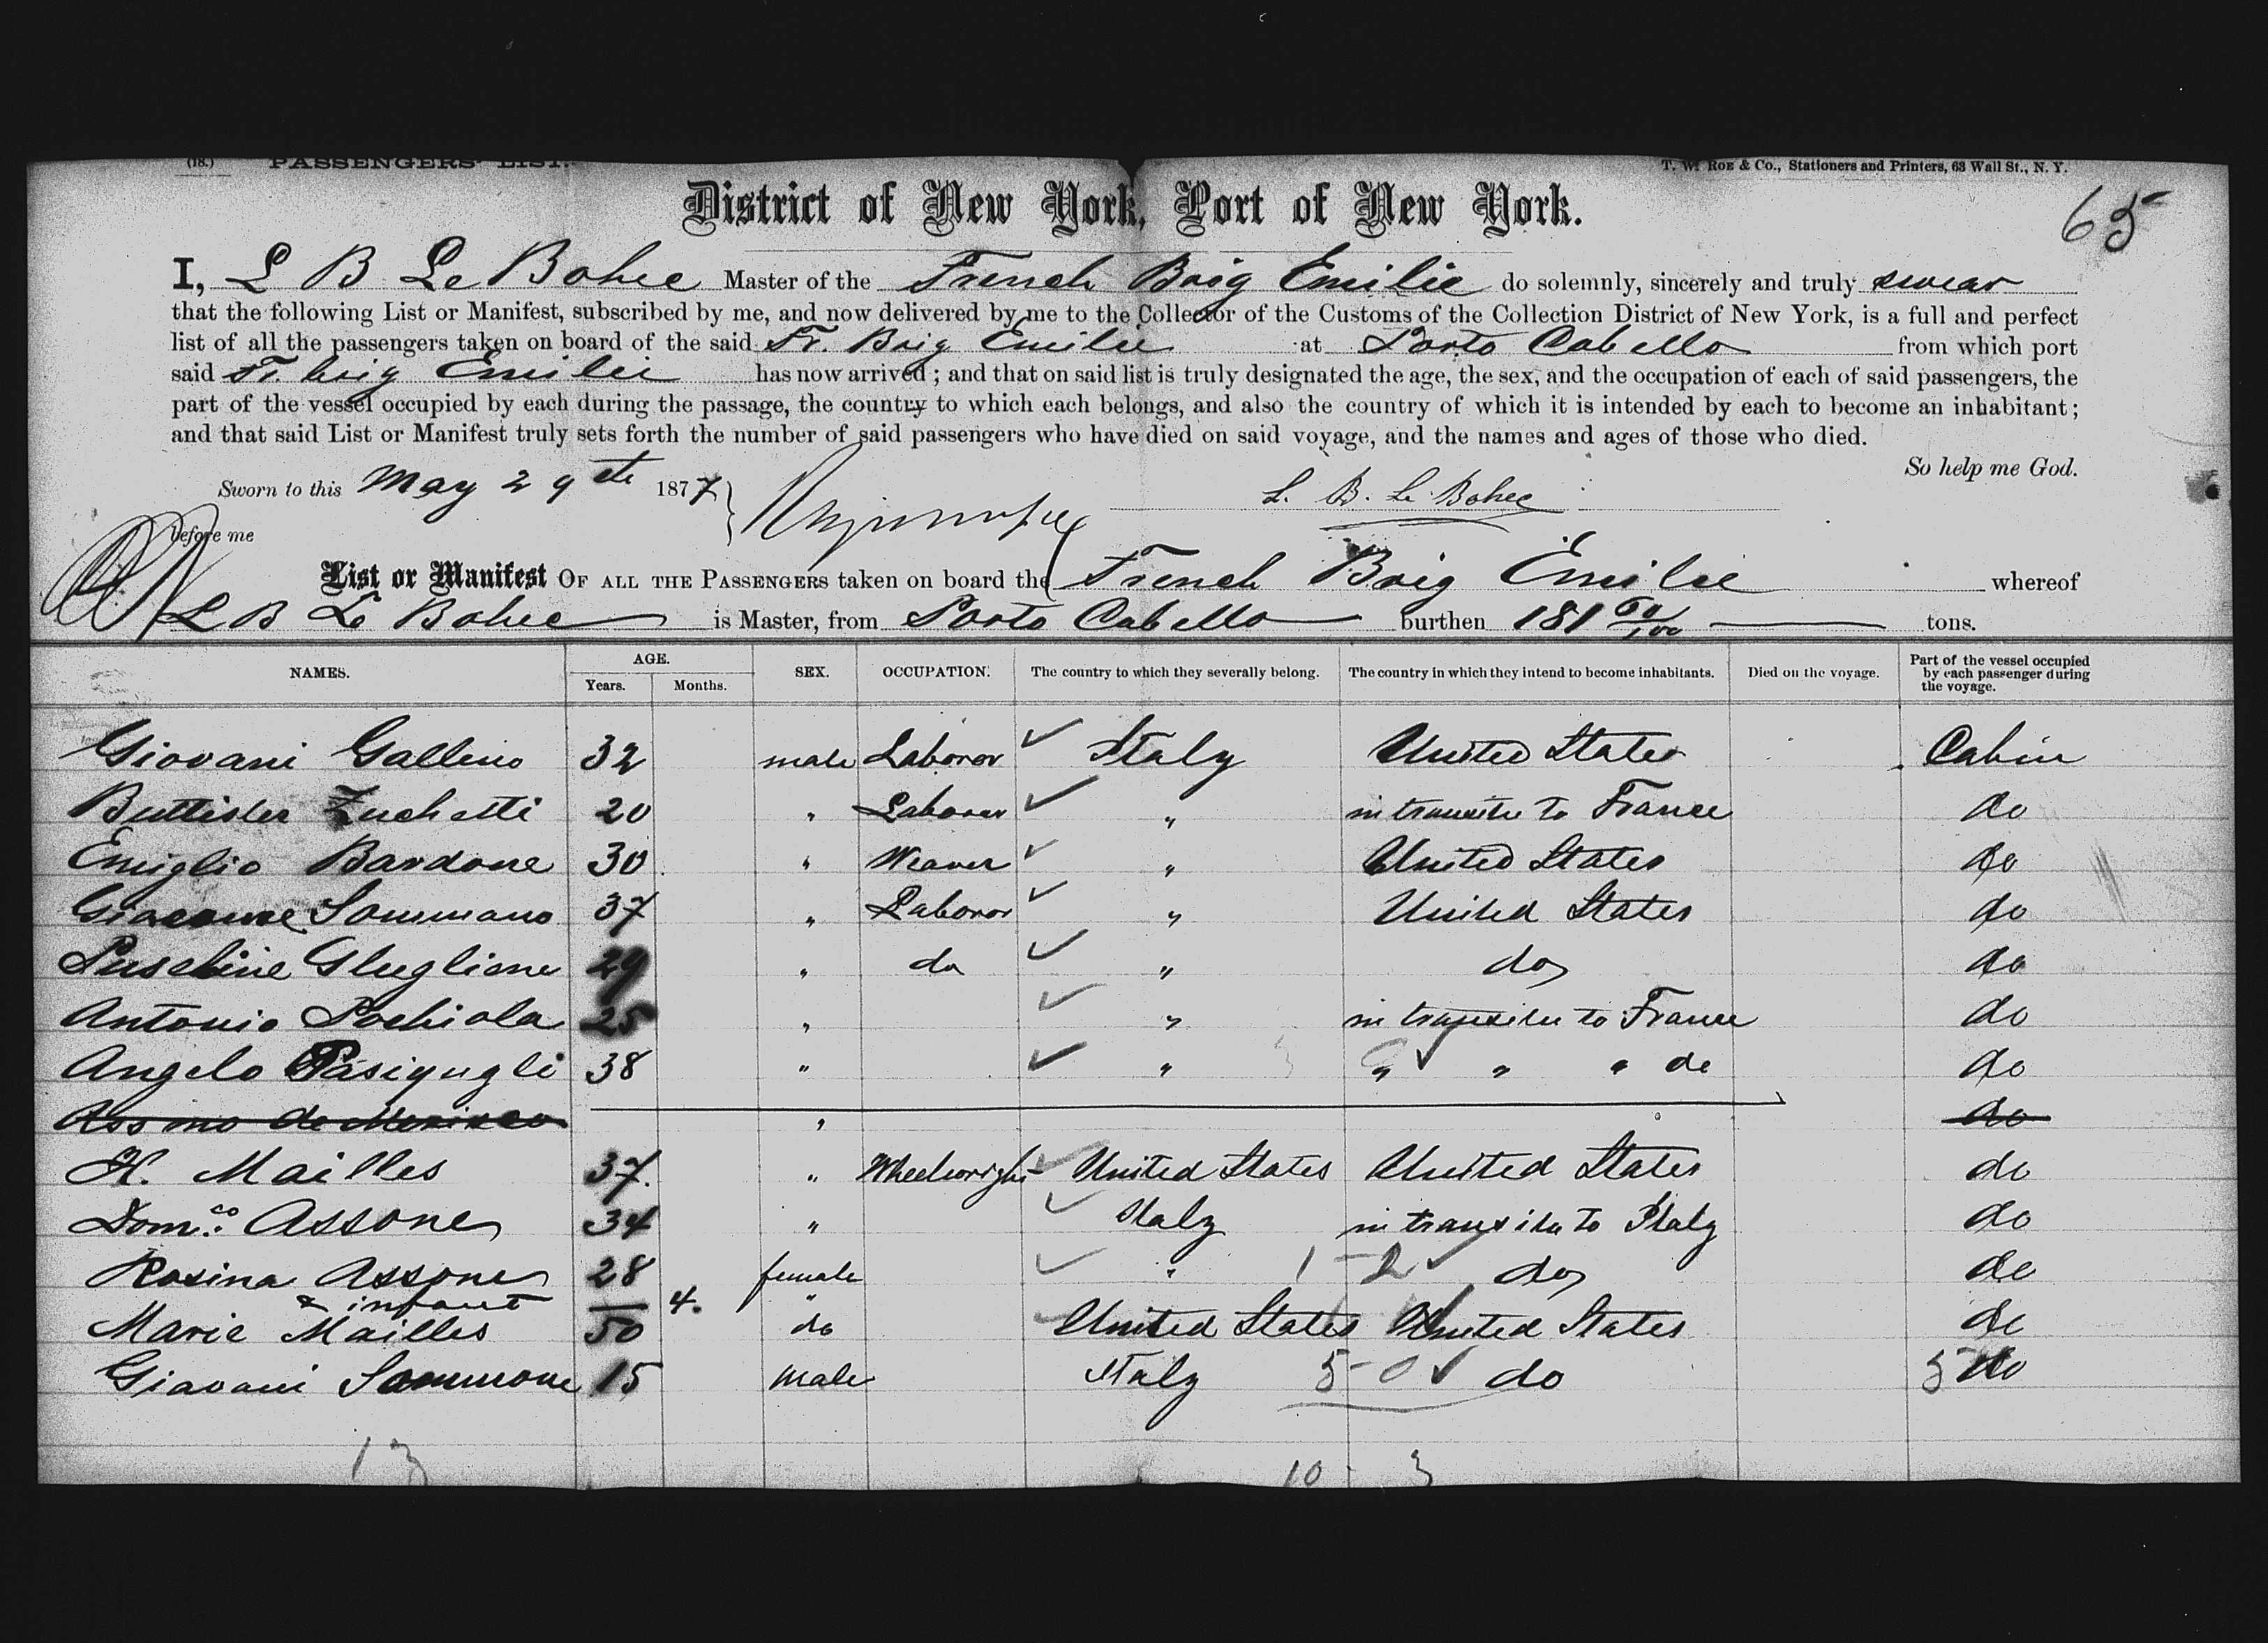 (18.) PASSENGERS' LIST.
T. W. ROE & Co., Stationers and Printers, 63 Wall St., N. Y.
65
District of New York, Port of New York.
I, L B Le Bohec Master of the French Brig Emilie do solemnly, sincerely and truly swear
that the following List or Manifest, subscribed by me, and now delivered by me to the Collector of the Customs of the Collection District of New York, is a full and perfect
list of all the passengers taken on board of the said Fr. Brig Emilie at Porto Cabello from which port
said Fr. brig Emilie has now arrived; and that on said list is truly designated the age, the sex, and the occupation of each of said passengers, the
part of the vessel occupied by each during the passage, the country to which each belongs, and also the country of which it is intended by each to become an inhabitant;
and that said List or Manifest truly sets forth the number of said passengers who have died on said voyage, and the names and ages of those who died.
So help me God.
Sworn to this May 29th 1877
L. B. Le Bohec
before me
List or Manifest OF ALL THE PASSENGERS taken on board the French Brig Emilie whereof
L B Le Bohec is Master, from Porto Cabello burthen 181 60/100 tons.
NAMES. AGE. Years. Months. SEX. OCCUPATION. The country to which they severally belong. The country in which they intend to become inhabitants. Died on the voyage. Part of the vessel occupied by each passenger during the voyage.
Giovani Gallino 32 male Laboror Italy United States Cabin
Zuchetti 20 " Laborer " in transitu to France do
Emiglio Bardone 30 " Weaver " United States do
Sommano 37 " Laboror " United States do
29 " do " do do
Antonio Pochiola 25 " " in transitu to France do
Angelo 38 " " " " " do do
" do
H. Mailles 37. " Wheelwright United States United States do
Dom.co Assone 34 " Italy in transitu to Italy do
Rosina Assone 28 female " 1 - 2 do do
& infant 4. "
Marie Mailles 50 do United States United States do
Giovani Sommone 15 male Italy 5 - 0 do 5 do
13 10 3